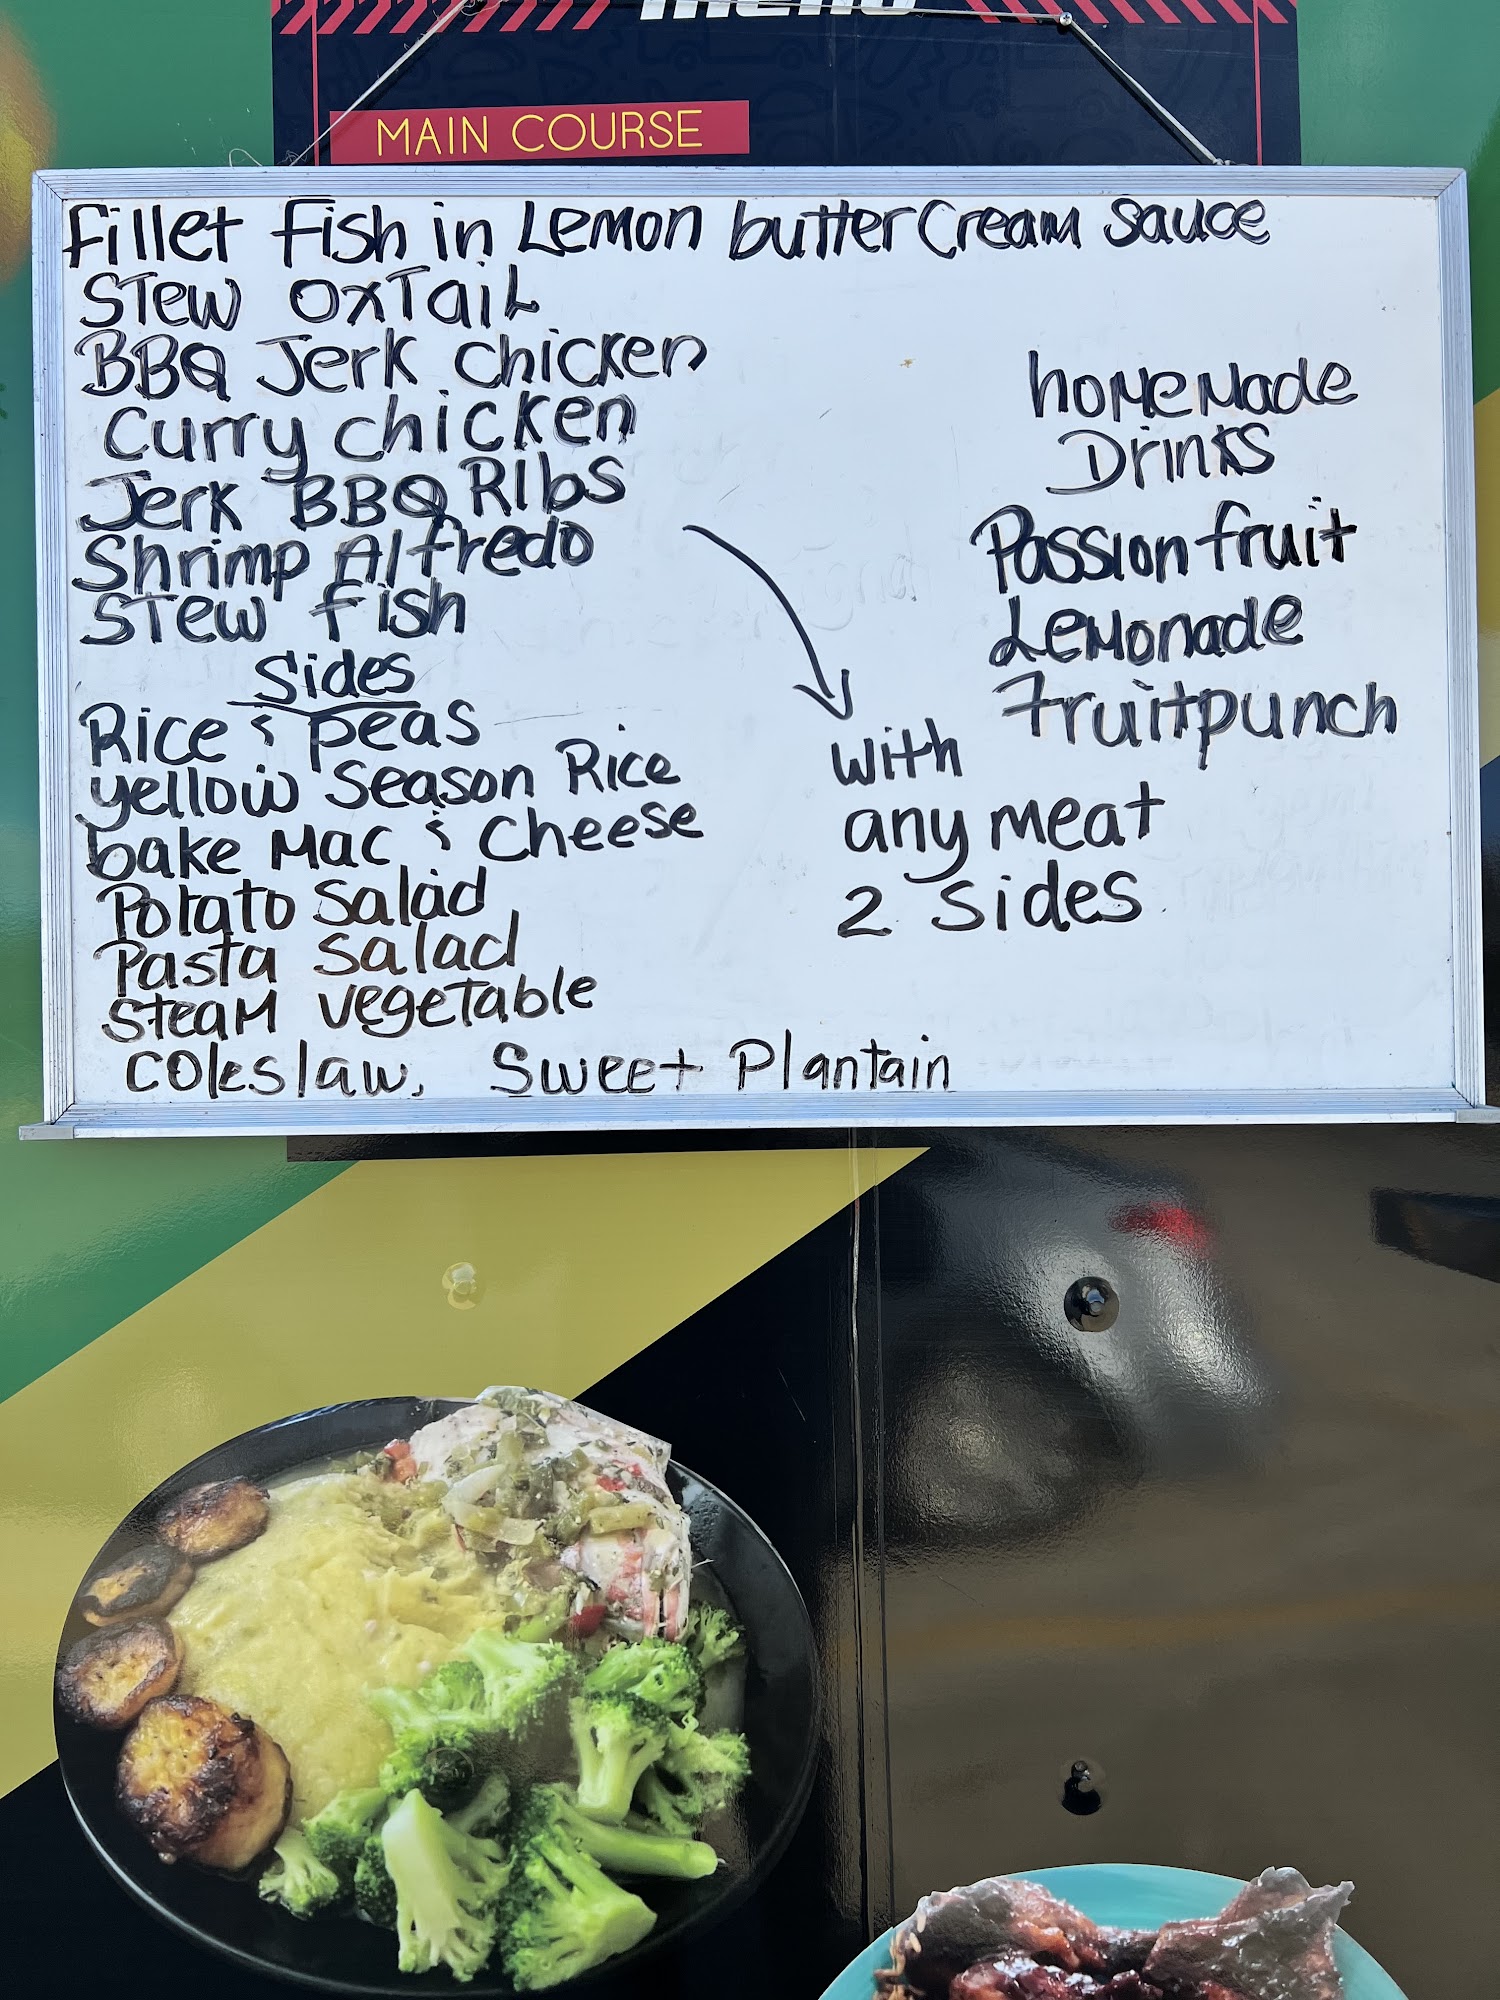 MENU
MAIN COURSE
Fillet Fish in Lemon butter Cream Sauce
Stew OxTail
BBQ Jerk Chicken
Curry Chicken
Jerk BBQ Ribs
Shrimp Alfredo
Stew fish
Sides
Rice & peas
yellow Season Rice
bake Mac & Cheese
Potato Salad
Pasta Salad
Steam vegetable
Coleslaw, Sweet Plantain
with
any meat
2 Sides
homemade
Drinks
Passion fruit
Lemonade
Fruitpunch